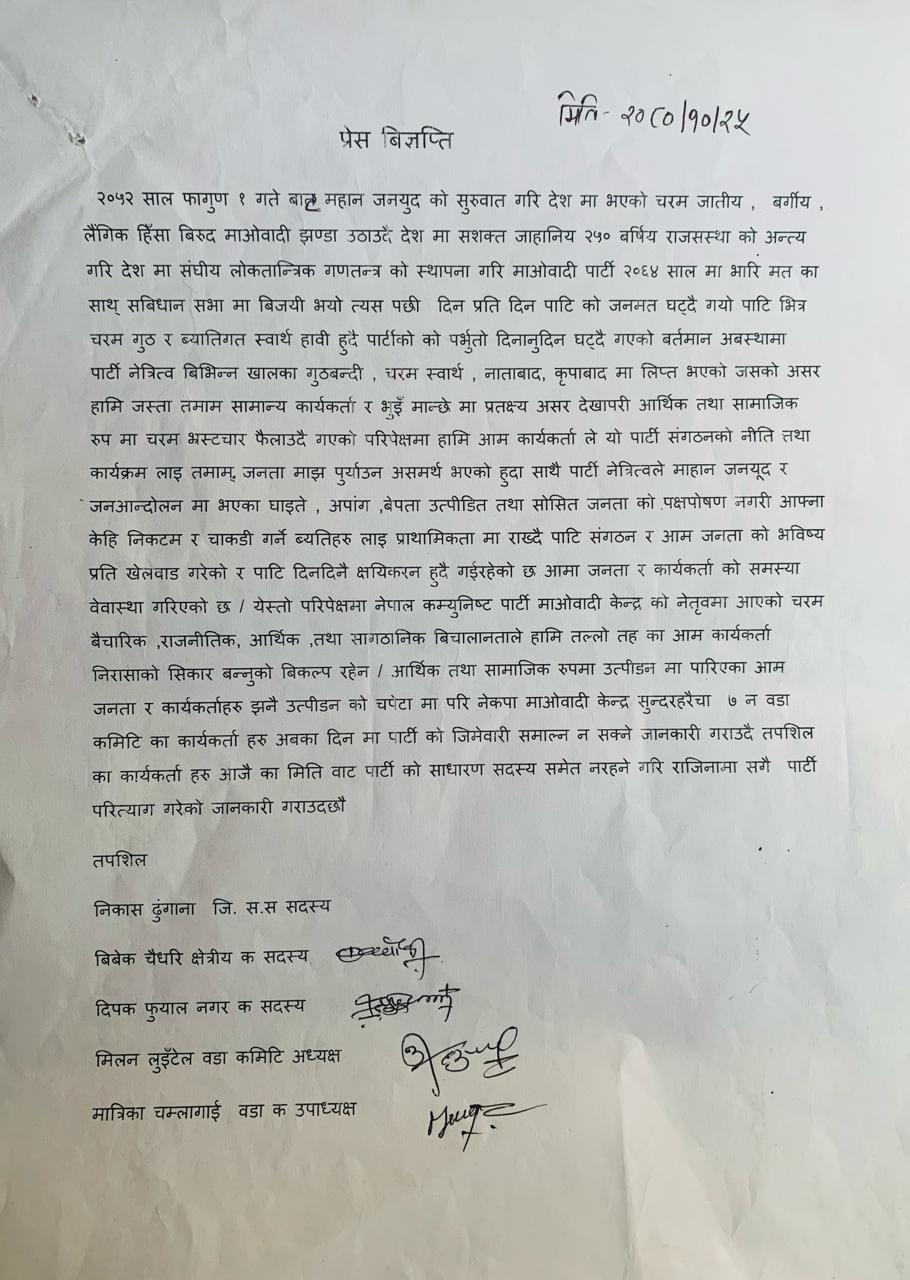 मिति- २०८०/१०/२५
प्रेस बिज्ञप्ति
२०५२ साल फागुण १ गते बाट महान जनयुद को सुरुवात गरि देश मा भएको चरम जातीय , बर्गीय ,
लैंगिक हिँसा बिरुद माओवादी झण्डा उठाउदै देश मा सशक्त जाहानिय २५० बर्षिय राजसस्था को अन्त्य
गरि देश मा संघीय लोकतान्त्रिक गणतन्त्र को स्थापना गरि माओवादी पार्टी २०६४ साल मा भारि मत का
साथ् सबिधान सभा मा बिजयी भयो त्यस पछी दिन प्रति दिन पाटि को जनमत घट्दै गयो पाटि भित्र
चरम गुठ र ब्यातिगत स्वार्थ हावी हुदै पार्टीको को पर्भुतो दिनानुदिन घट्दै गएको बर्तमान अबस्थामा
पार्टी नेत्रित्व बिभिन्न खालका गुठबन्दी , चरम स्वार्थ , नाताबाद, कृपाबाद मा लिप्त भएको जसको असर
हामि जस्ता तमाम सामान्य कार्यकर्ता र भुइँ मान्छे मा प्रतक्ष्य असर देखापरी आर्थिक तथा सामाजिक
रुप मा चरम भ्रस्टचार फैलाउदै गएको परिपेक्षमा हामि आम कार्यकर्ता ले यो पार्टी संगठनको नीति तथा
कार्यक्रम लाइ तमाम् जनता माझ पुर्याउन असमर्थ भएको हुदा साथै पार्टी नेत्रित्वले माहान जनयूद र
जनआन्दोलन मा भएका घाइते , अपांग ,बेपता उत्पीडित तथा सोसित जनता को पक्षपोषण नगरी आफ्ना
केहि निकटम र चाकडी गर्ने ब्यतिहरु लाइ प्राथामिकता मा राख्दै पाटि संगठन र आम जनता को भविष्य
प्रति खेलवाड गरेको र पाटि दिनदिनै क्षयिकरन हुदै गईरहेको छ आमा जनता र कार्यकर्ता को समस्या
वेवास्था गरिएको छ / येस्तो परिपेक्षमा नेपाल कम्युनिष्ट पार्टी माओवादी केन्द्र को नेतृवमा आएको चरम
बैचारिक ,राजनीतिक, आर्थिक ,तथा सागठानिक बिचालानताले हामि तल्लो तह का आम कार्यकर्ता
निरासाको सिकार बन्नुको बिकल्प रहेन / आर्थिक तथा सामाजिक रुपमा उत्पीडन मा पारिएका आम
जनता र कार्यकर्ताहरु झनै उत्पीडन को चपेटा मा परि नेकपा माओवादी केन्द्र सुन्दरहरैचा ७ न वडा
कमिटि का कार्यकर्ता हरु अबका दिन मा पार्टी को जिमेवारी समाल्न न सक्ने जानकारी गराउदै तपशिल
का कार्यकर्ता हरु आजै का मिति वाट पार्टी को साधारण सदस्य समेत नरहने गरि राजिनामा सगै पार्टी
परित्याग गरेको जानकारी गराउदछौ
तपशिल
निकास ढुंगाना जि. स.स सदस्य
बिबेक चैधरि क्षेत्रीय क सदस्य
दिपक फुयाल नगर क सदस्य
मिलन लुइँटेल वडा कमिटि अध्यक्ष
मात्रिका चम्लागाई वडा क उपाध्यक्ष